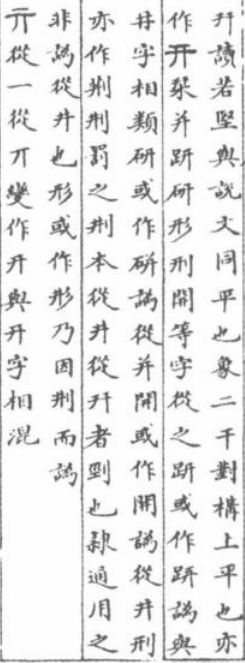 幵讀若堅與說文同平也象二干對構上平也亦
作开栞并趼研形刑開等字從之趼或作跰譌與
井字相類研或作硑譌從并開或作開譌從井刑
亦作荆刑罰之刑本從井從幵者剄也隷通用之
非譌從井也形或作形乃因刑而譌
亓從一從丌變作亓與开字相混